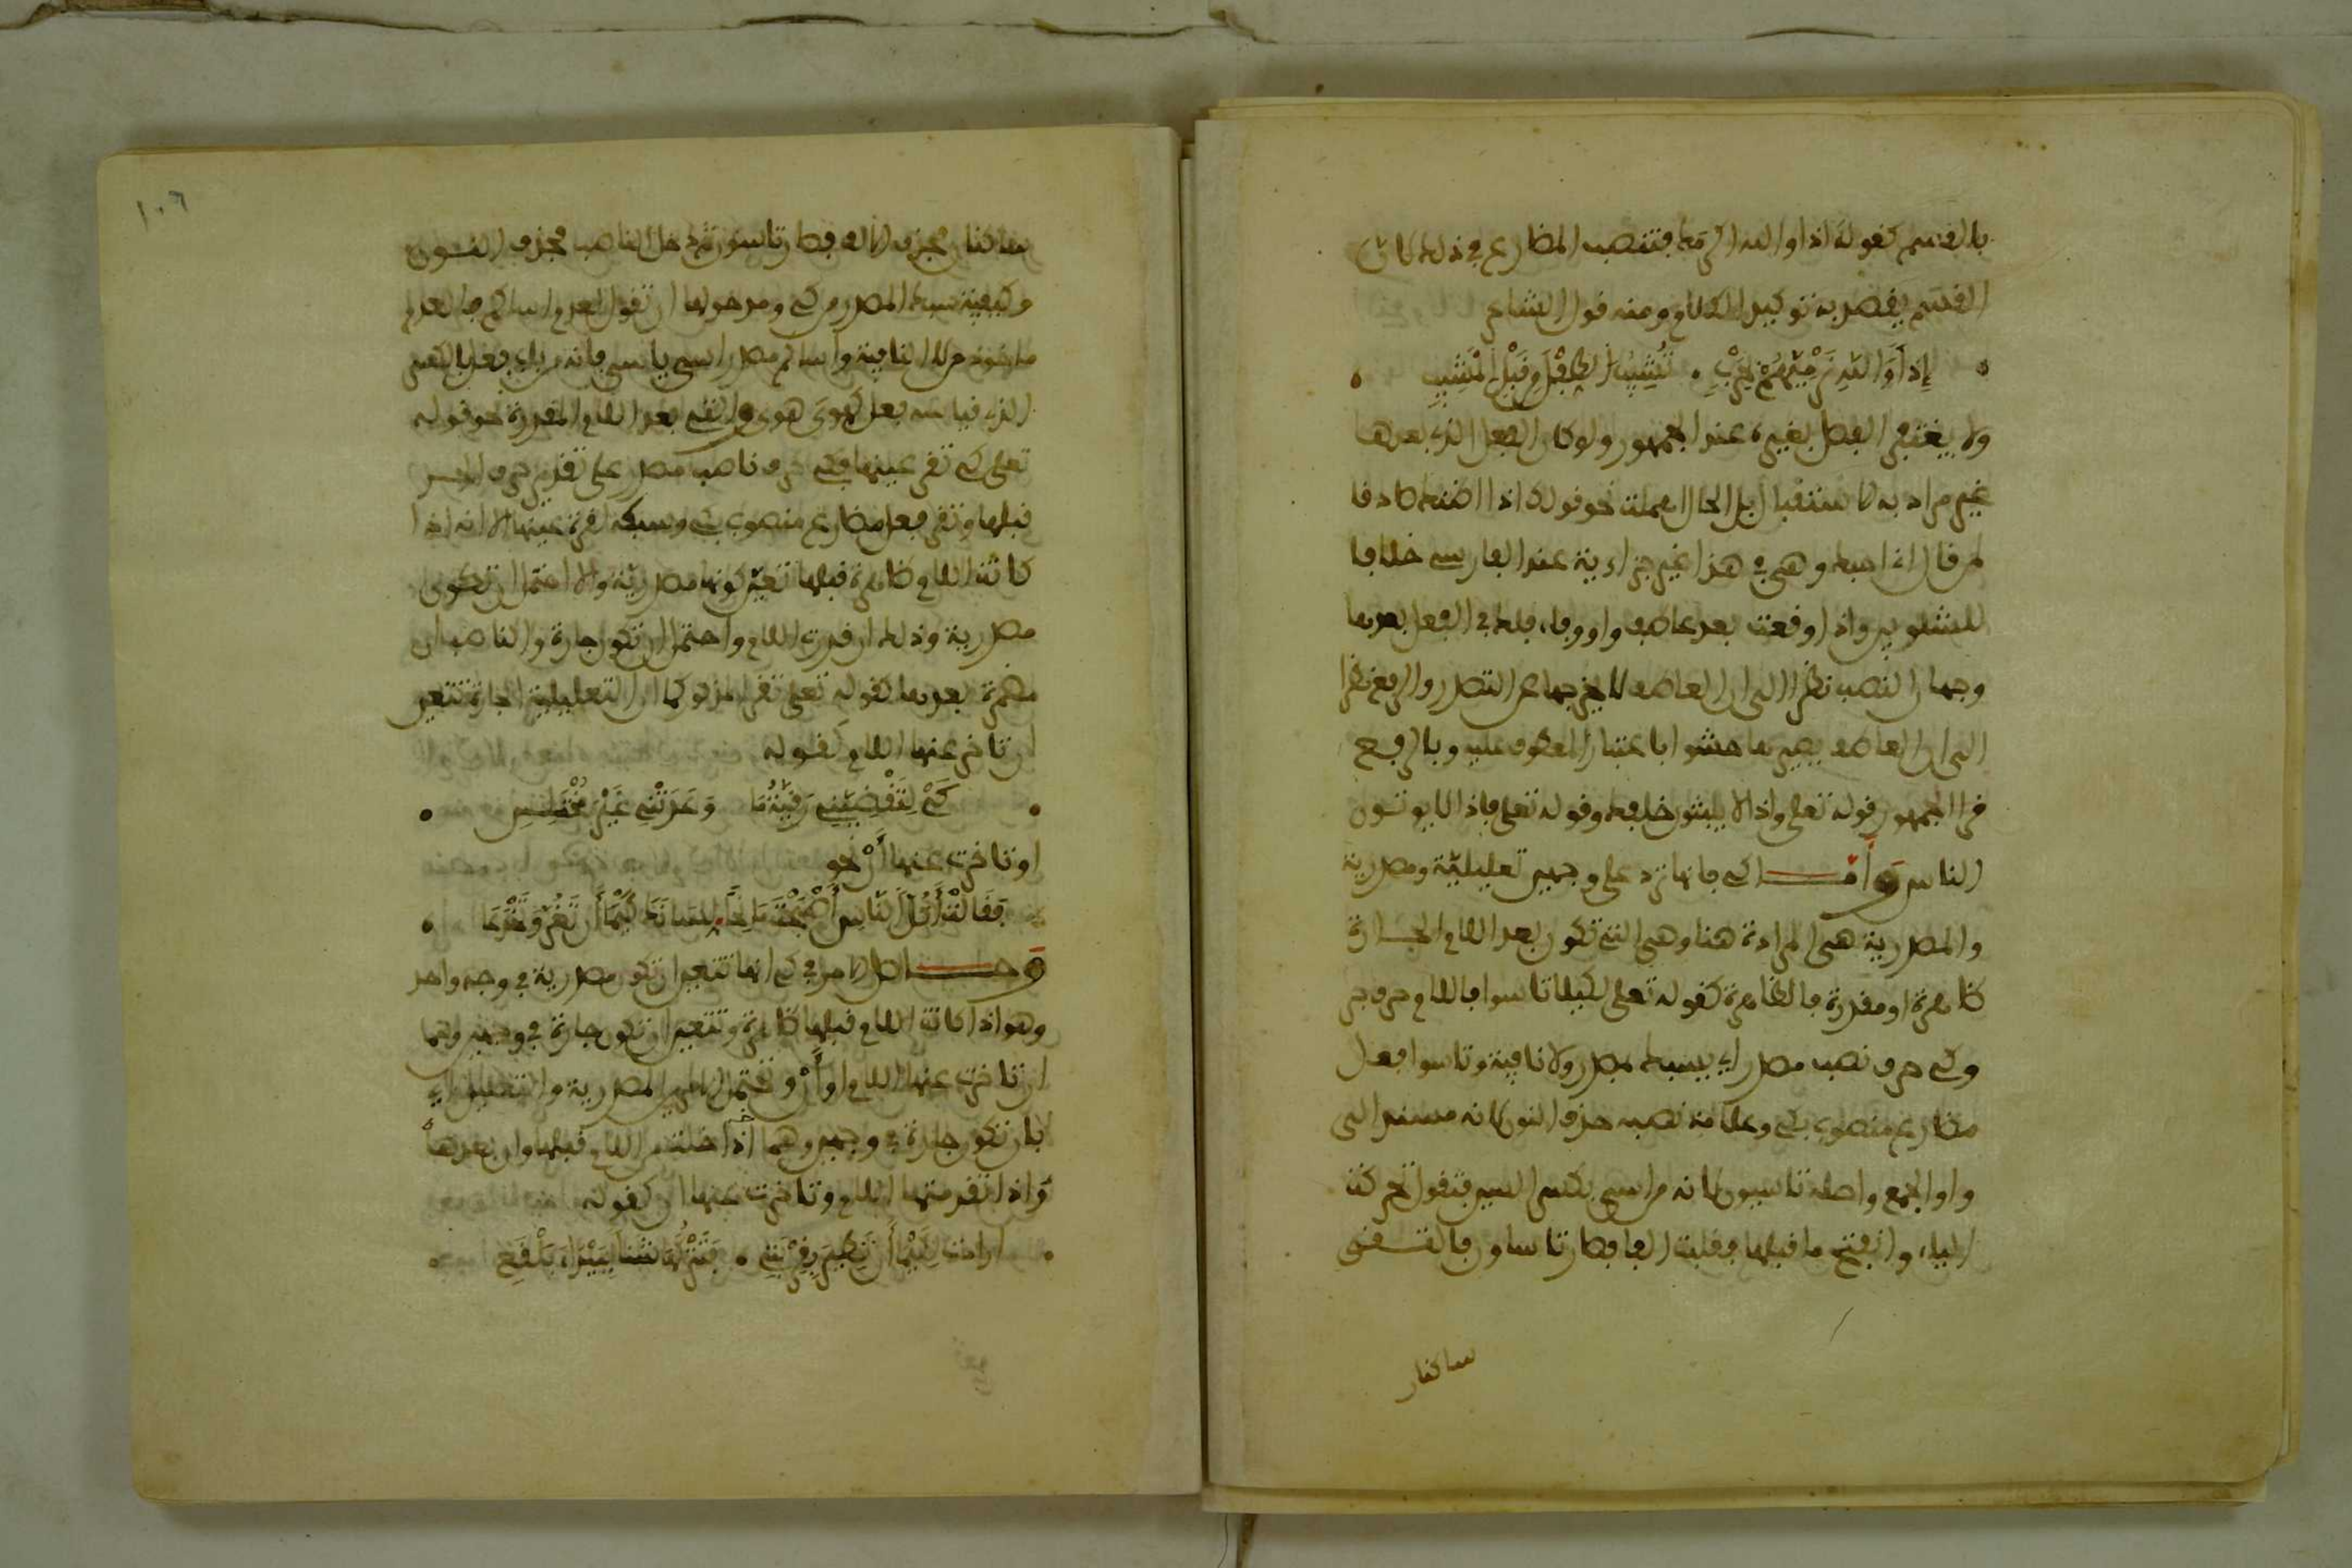 بالقسم كقوله اذا والله اكرمك فتنصب المضارع في ذلك لان
القسم يقصد به توكيد الكلام ومنه قول الشاعر
إِذاً وَاللَّهِ نَرْمِيَهُمْ بِحَرْبٍ . تُشِيبُ الطِّفْلَ مِنْ قَبْلِ الْمَشِيبِ
ولا يغتفر الفصل بغيره عند الجمهور ولو كان الفعل الذي بعدها
غير مراد به الاستقبال بل الحال اهملت نحو قولك اذا اظنك صادقا
لمن قال انا احبك وهي في هذا غير جزاءية عند الفارسي خلافا
للشلوبير واذا وقعت بعد عاطف واو وفاء فلك في الفعل بعدها
وجهان النصب نظرا الى ان العاطف لا يخرجها عن التصدر والرفع نظرا
الى ان العاطف يصيرها حشوا باعتبار المعطوف عليه وبالرفع
قرا الجمهور قوله تعلى واذا لا يلبثون خلافك وقوله تعلى فاذا لا يوتون
الناس وأمـــا كي فانها ترد على وجهين تعليلية ومصدرية
والمصدرية هي المرادة هنا وهي التي تكون بعد اللام الجـارة
ظاهرة او مقدرة فالظاهرة كقوله تعلى لكيلا تاسوا فاللام حرف جر
وكي حرف نصب مصدراي يسبك بمصدر ولا نافية وتاسوا فعل
مضارع منصوب بكي وعلامة نصبه حذف النون لانه مسند الى
واو الجمع واصله تاسيون لانه من اسي بكسر السين فتقول تحركت
الياء وانفتح ما قبلها فقلبت الفا فصار تاساون فالتـقى
ساكنان
١٠٦
ساكنان فحذف الالف فصار تاسون ثم دخل الناصب فحذف النـون
وكيفية سبك المصدر من كي ومدخولها ان تقول لعدم اساكم فالعدم
ماخوذ من لا النافية واساكم مصدر اسي ياسى فانه من باب فعل بالكسر
الذي قياسه فعل كهوى هوى والتي بعد اللام المقدرة نحو قوله
تعلى كي تقر عينها فكي حرف ناصب مصدر على تقدير حرف الجـر
قبلها وتقر فعل مضارع منصوب بكي وسبكه لقرة عينها الا انه اذا
كانت اللام ظاهرة قبلها تعين كونها مصدرية والا احتمل ان تكون
مصدرية وذلك ان قدرت اللام واحتمل ان تكون جارة والناصب ان
مضمرة بعدها كقوله تعلى تقر المذكور كما ان التعليلية الجارة تتعين
ان تاخر عنها اللام كقوله
كَيْ لِتَقْضِيَنِي رُقَيَّةُ مَا وَعَدَتْنِي غَيْرَ مُخْتَلِسِ
او تاخرت عنها أَنْ نحو
فَقَالَتْ أَكُلَّ النَّاسِ أَصْبَحْتَ مَانِحاً لِسَانَكَ كَيْمَا أَنْ تَغُرَّ وَتَخْدَعَا
وحـــاصل الامر في كي انها تتعين ان تكون مصدرية في وجه واحد
وهو اذا كانت اللام قبلها ظاهرة وتتعين ان تكون جارة في وجهين وهما
ان تاخرت عنها اللام او أَنْ وتحتمل الامرين المصدرية والتعليل اي
لان تكون جارة في وجهين وهما اذا خلت من اللام قبلها وان بعدها
واذا تقدمتها اللام وتاخرت عنها ان كقوله
ارادت لِكَيْمَا أَنْ تَطِيرَ بِقِرْبَتِي . فَتَتْرُكَهَا شَنّاً بِبَيْدَاءَ بَلْقَعِ